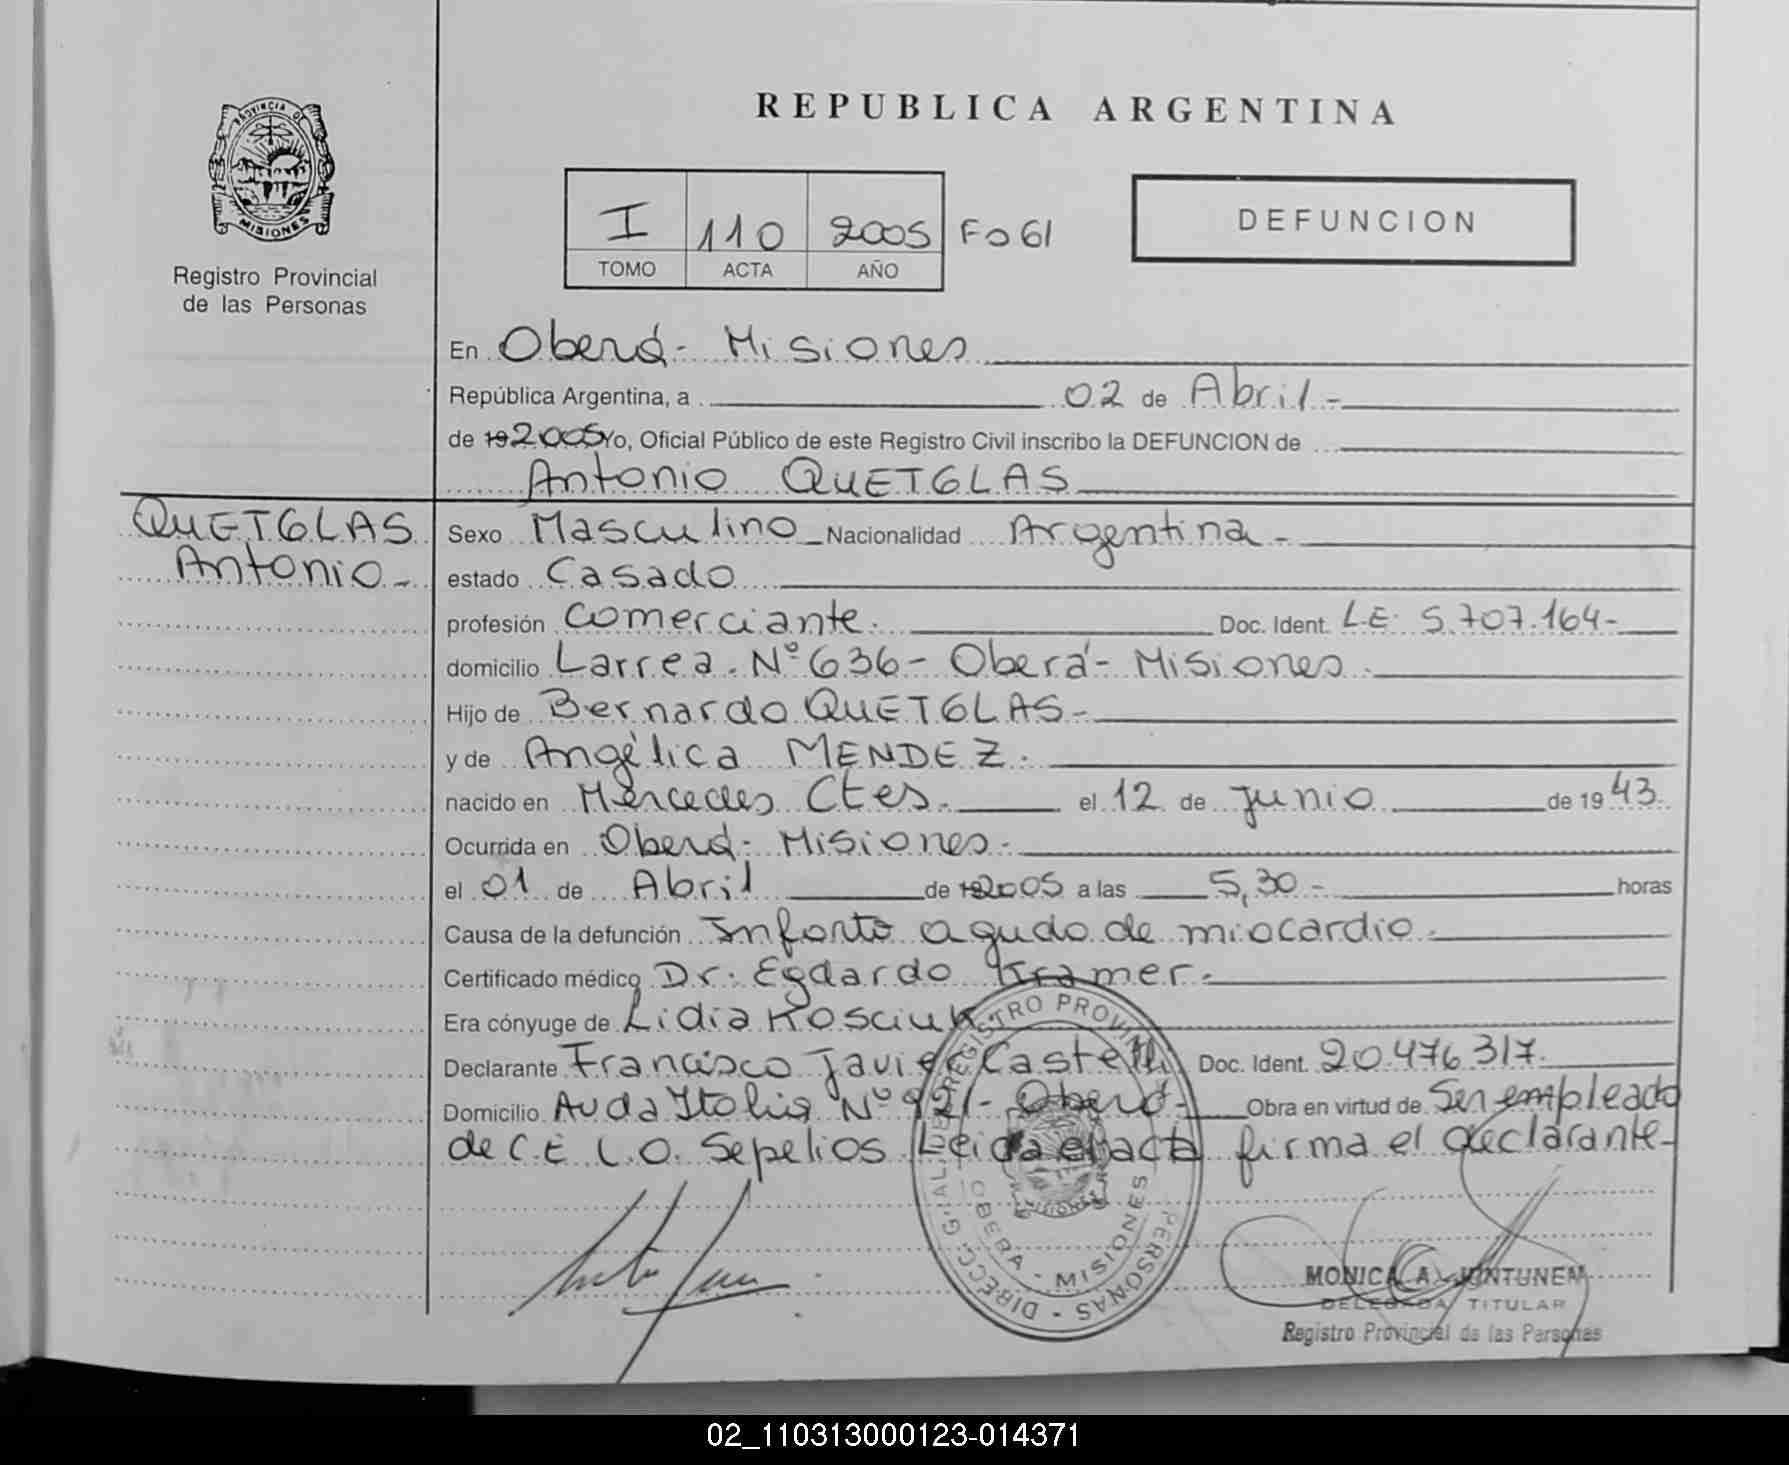 PROVINCIA DE
MISIONES
Registro Provincial
de las Personas
REPUBLICA ARGENTINA
I 110 2005 Fo 61
TOMO ACTA AÑO
DEFUNCION
En Oberá - Misiones
República Argentina, a 02 de Abril -
de 19 2005 Yo, Oficial Público de este Registro Civil inscribo la DEFUNCION de
Antonio QUETGLAS
QUETGLAS
Antonio -
Sexo Masculino Nacionalidad Argentina -
estado Casado
profesión Comerciante. Doc. Ident. L.E. 5.707.164 -
domicilio Larrea Nº 636 - Oberá - Misiones.
Hijo de Bernardo QUETGLAS -
y de Angélica MENDEZ.
nacido en Mercedes Ctes. el 12 de Junio de 19 43.
Ocurrida en Oberá - Misiones -
el 01 de Abril de 19 2005 a las 5,30 - horas
Causa de la defunción Infarto agudo de miocardio.
Certificado médico Dr. Egdardo Kramer -
Era cónyuge de Lidia Kosciuk
Declarante Francisco Javier Castelli Doc. Ident. 20.476.317.
Domicilio Avda Italia Nº 921 - Oberá - Obra en virtud de Ser empleado
de C.E.L.O. Sepelios Leida el acta firma el declarante -
REGISTRO PROVINCIAL DE LAS PERSONAS - DIRECC. G'AL.
OBERA - MISIONES
MONICA A. JUNTUNEN
DELEGADA TITULAR
Registro Provincial de las Personas
02_110313000123-014371